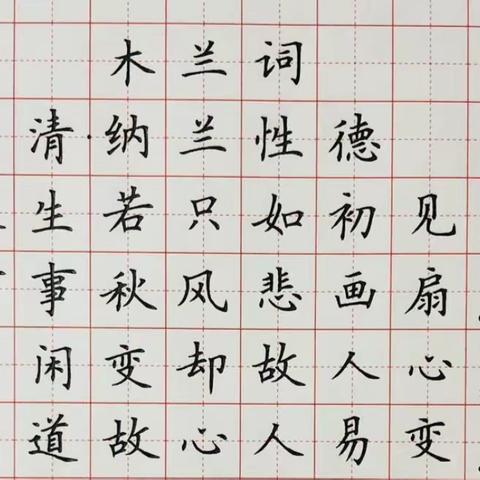 木兰词
清·纳兰性德
生若只如初见
事秋风悲画扇
闲变却故人心
道故心人易变